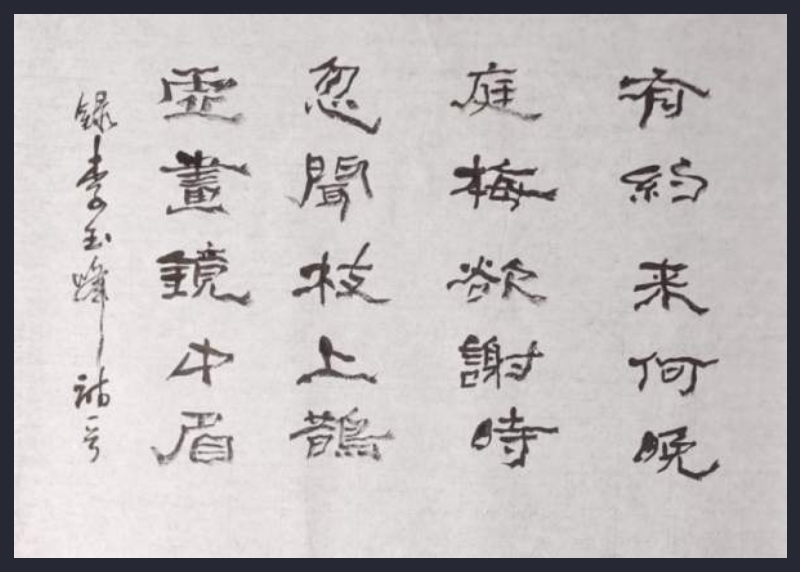 有約来何晚
庭梅欲謝時
忽聞枝上鵲
虛畫鏡中眉
錄李玉峰詩一首